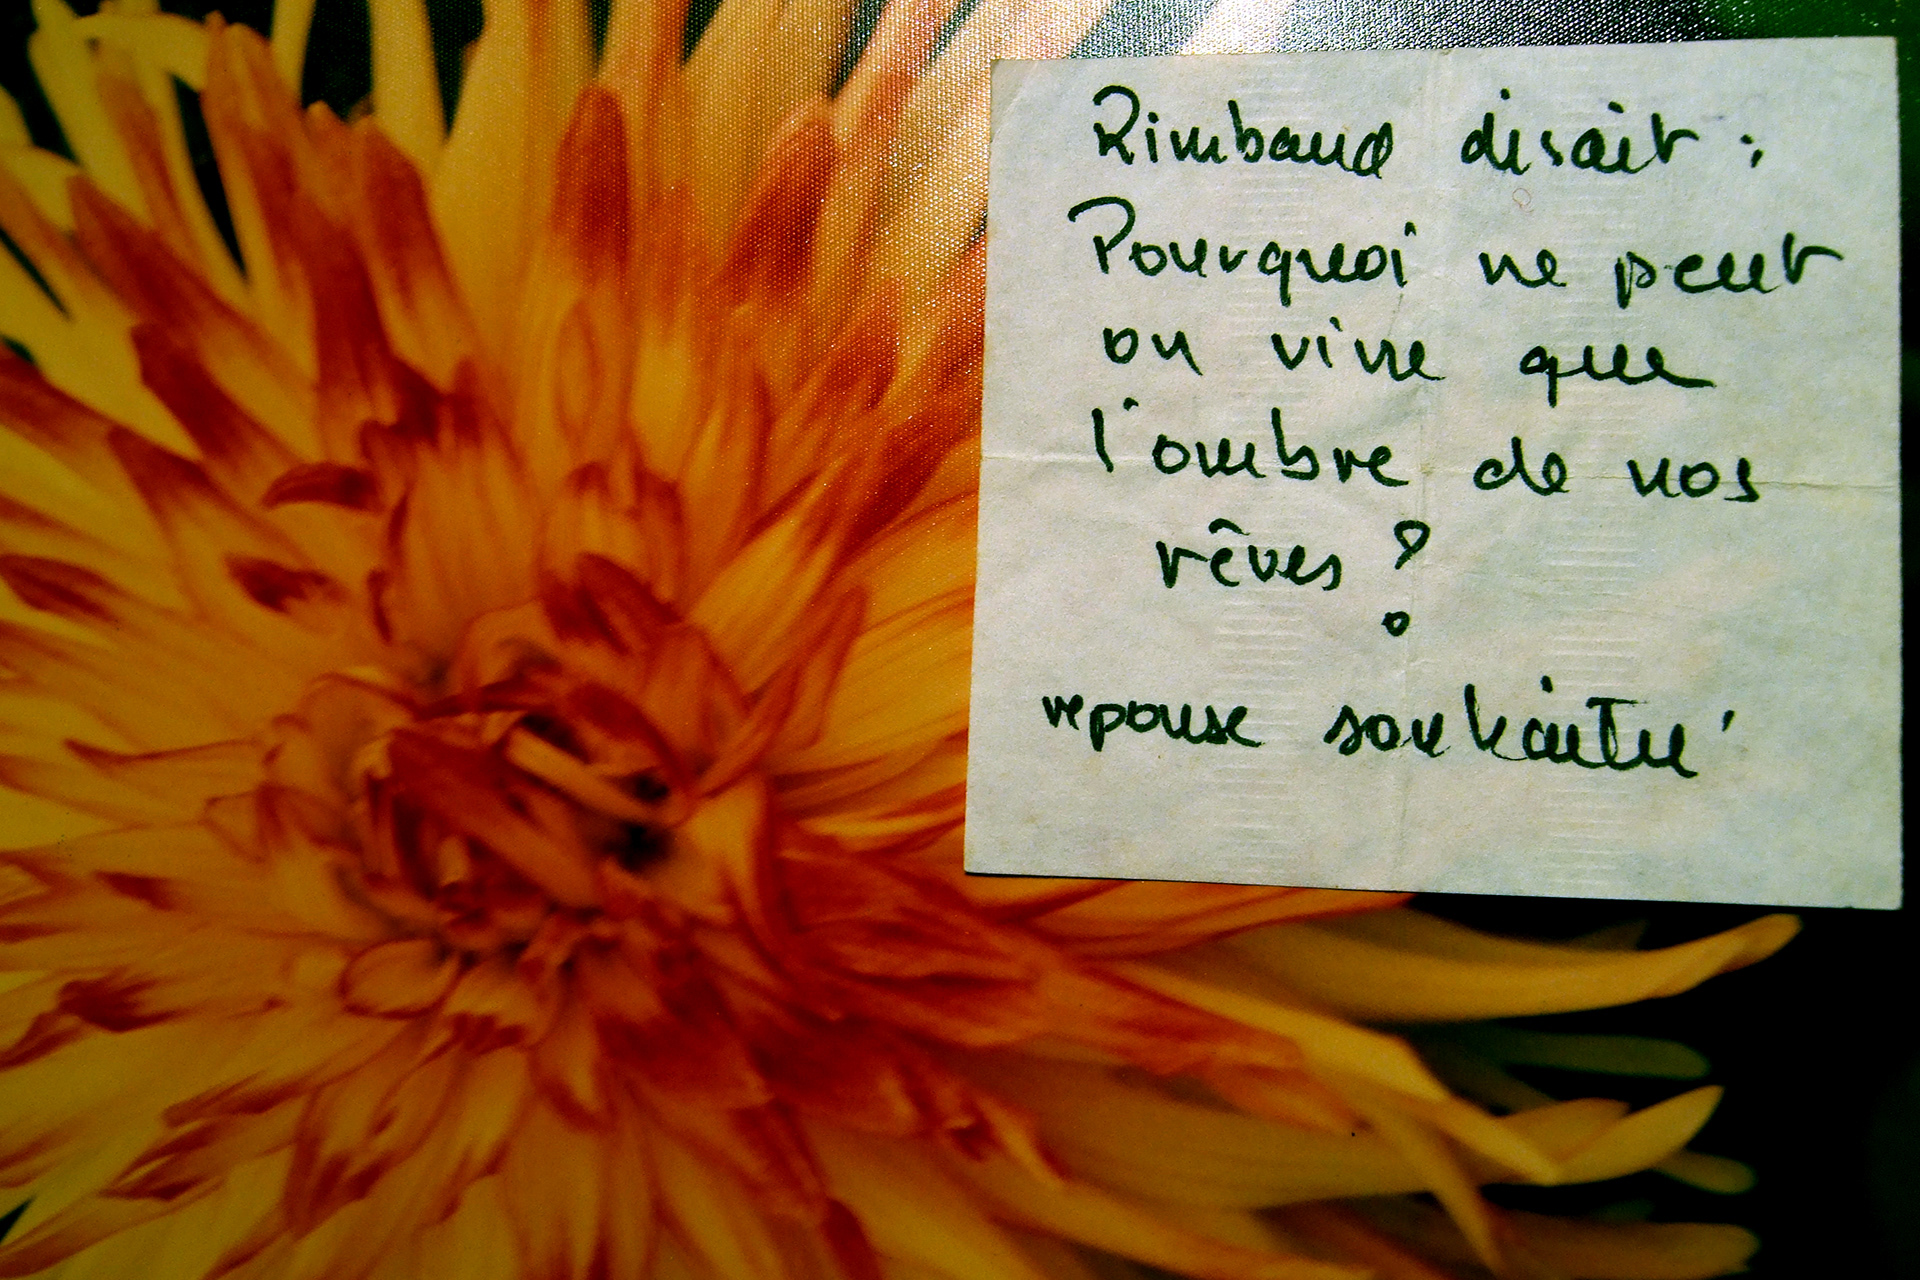 Rimbaud disait :
Pourquoi ne peut
on vivre que
l'ombre de nos
rêves ?
reponse souhaitée